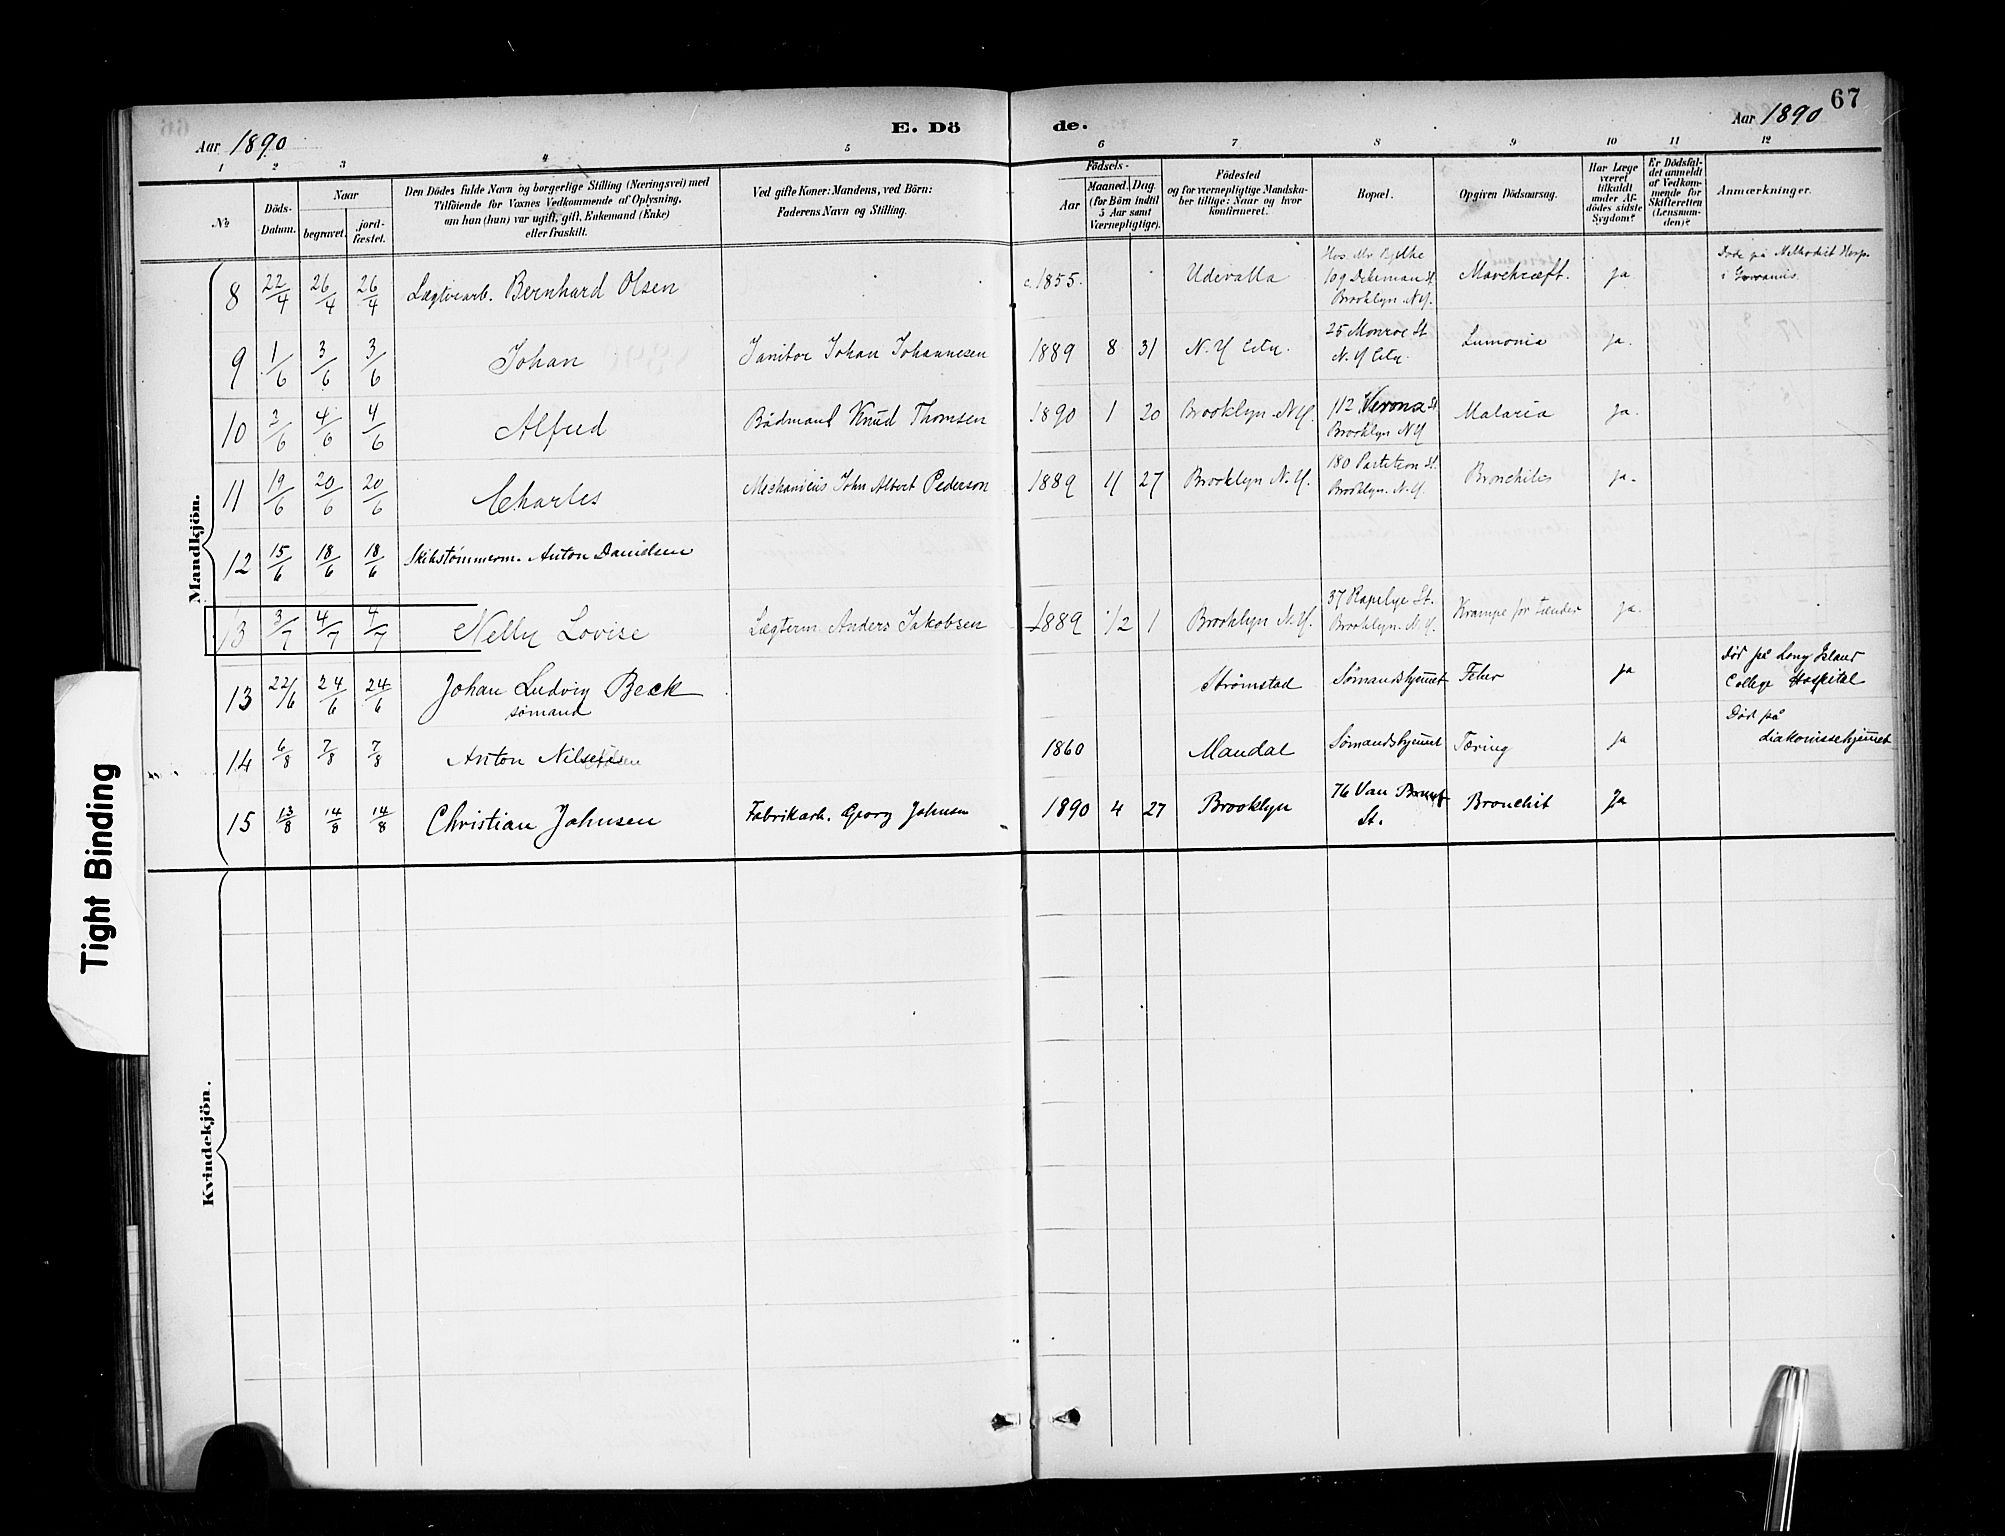 67
Aar 1890
E. Dö
de.
Aar 1890
1 2 3 4 5 6 7 8 9 10 11 12
No
Döds-
Datum.
Naar
begravet.
jord-
fæstet.
Den Dödes fulde Navn og borgerlige Stilling (Næringsvei) med
Tilföiende for Voxnes Vedkommende af Oplysning,
om han (hun) var ugift, gift, Enkemand (Enke)
eller fraskilt.
Ved gifte Koner: Mandens, ved Börn:
Faderens Navn og Stilling.
Födsels-
Aar
Maaned. Dag.
(for Börn indtil
5 Aar samt
Værnepligtige).
Födested
og for værnepligtige Mandska-
ber tillige: Naar og hvor
konfirmeret.
Bopæl.
Opgiven Dödsaarsag.
Har Læge
været
tilkaldt
under Af-
dödes sidste
Sygdom?
Er Dödsfal-
det anmeldt
af Vedkom-
mende for
Skifteretten
(Lensman-
den)?
Anmærkninger.
Mandkjön.
8 22/4 26/4 26/4 Lægtvearb. Bernhard Olsen c. 1855. Udevalla
109 Dikeman St.
Brooklyn N.Y.
Mavekræft. ja
Døde på Methodist Hosp.
9 1/6 3/6 3/6 Johan Janitor Johan Johannesen 1889 8 31 N.Y. City.
25 Monroe St.
N.Y. City.
Lumonia ja.
10 3/6 4/6 4/6 Alfred Bådmand Knud Thomsen 1890 1 20 Brooklyn N.Y.
112 Verona St
Brooklyn N.Y
Malaria ja.
11 19/6 20/6 20/6 Charles Mechanicus John Albert Pederson 1889 11 27 Brooklyn N.Y.
180 Partition St.
Brooklyn. N.Y.
Bronchites ja.
12 15/6 18/6 18/6 Skibstømmerm. Anton Danielsen
13 3/7 4/7 4/7 Nelly Lovise Lægterm. Anders Jakobsen 1889 12 1 Brooklyn N.Y.
37 Rapelye St.
Brooklyn. N.Y.
Krampe for tænder ja.
13 22/6 24/6 24/6 Johan Ludvig Beck
sømand
Strömstad Sømandshjemmet Feber ja
Död på Long Island
College Hospital
14 6/8 7/8 7/8 Anton Nilsen 1860 Mandal Sømandshjemmet Tæring ja
Död på
diakonissehjemmet
15 13/8 14/8 14/8 Christian Johnsen Fabrikarb. Georg Johnsen 1890 4 27 Brooklyn
76 Van Brunt
St.
Bronchit Ja
Kvindekjön.
Tight Binding